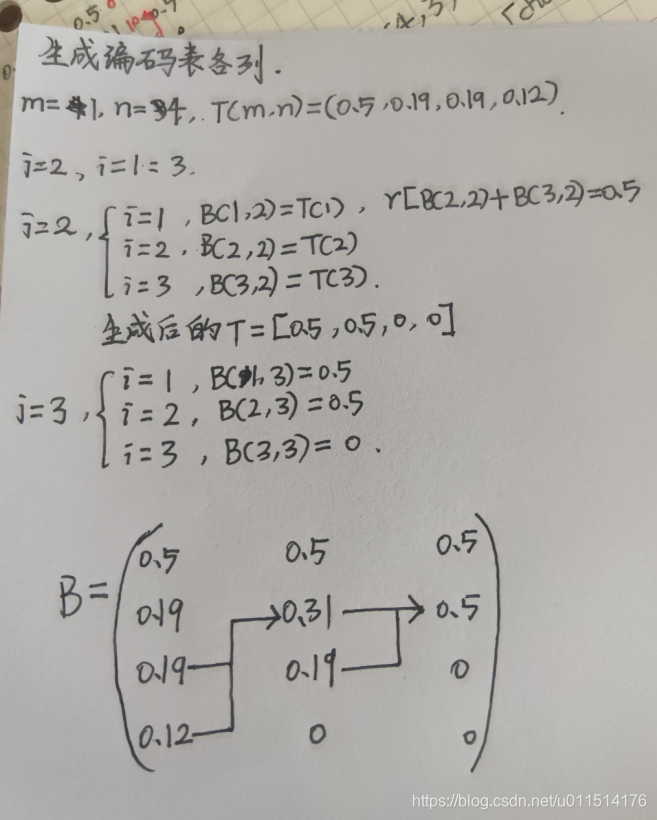 生成编码表各列.
m=1, n=4, T(m,n)=(0.5,0.19,0.19,0.12).
j=2, i=1:3.
j=2, { i=1, B(1,2)=T(1), r[B(2,2)+B(3,2)=0.5
i=2, B(2,2)=T(2)
i=3, B(3,2)=T(3).
生成后的T=[0.5,0.5,0,0]
j=3, { i=1, B(1,3)=0.5
i=2, B(2,3)=0.5
i=3, B(3,3)=0.
B=
0.5 0.5 0.5
0.19 0.31 0.5
0.19 0.19 0
0.12 0 0
https://blog.csdn.net/u011514176